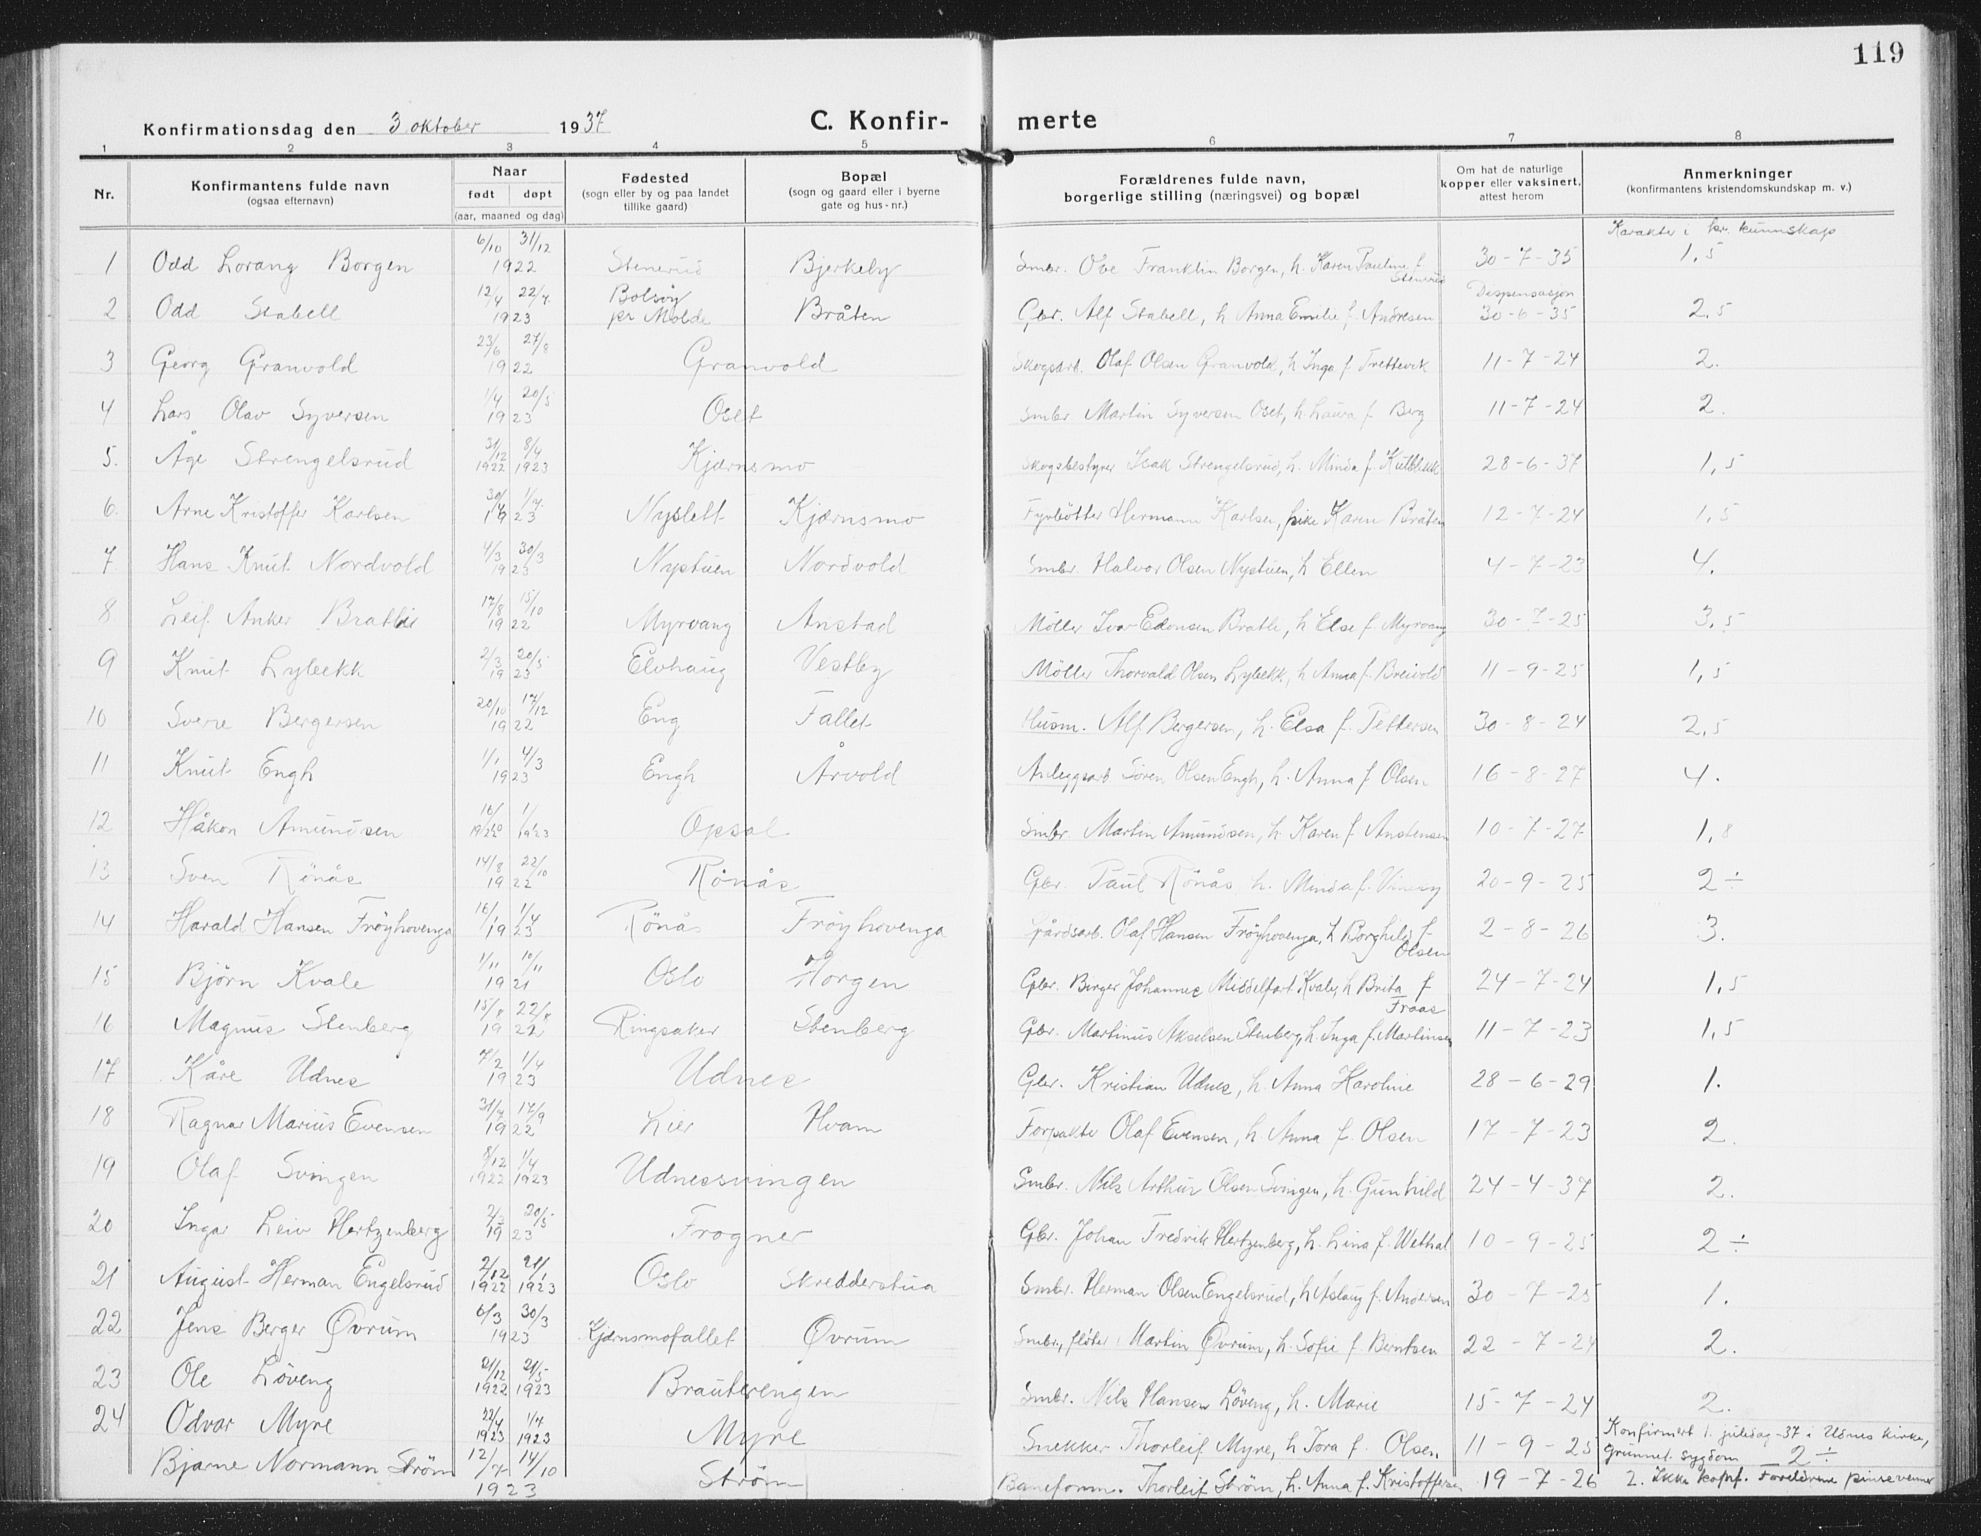 119
Konfirmationsdag den 3 oktober 1937 C. Konfir- merte
1 2 3 4 5 6 7 8
Nr. Konfirmantens fulde navn (ogsaa efternavn) Naar født døpt (aar, maaned og dag) Fødested (sogn eller by og paa landet tillike gaard) Bopæl (sogn og gaard eller i byerne gate og hus-nr.) Forældrenes fulde navn, borgerlige stilling (næringsvei) og bopæl Om hat de naturlige kopper eller vaksinert, attest herom Anmerkninger (konfirmantens kristendomskundskap m. v.)
Karakter i kr. kunnskap
1 Odd Lorang Borgen 6/10 31/12 1922 Stenerud Bjerkeby Smbr. Ove Franklin Borgen, h. Karen Pauline f Stenerud 30-7-35 1,5
2 Odd Stabell 12/4 22/7 1923 Bolsøy pr Molde Bråten Gbr. Alf Stabell, h Anna Emilie f. Andresen Dispensasjon 30-6-35 2,5
3 Georg Granvold 23/6 27/8 1922 Granvold Skogsarb. Olaf Olsen Granvold, h Inga f Trettevik 11-7-24 2.
4 Lars Olav Syversen 1/4 20/5 1923 Oset Smbr Martin Syversen Oset, h. Laura f Berg 11-7-24 2.
5. Åge Strengelsrud 31/12 8/4 1922 1923 Kjærnsmo Skogsbestyrer Isak Strengelsrud, h. Minda f. 28-6-37 1,5
6. Arne Kristoffer Karlsen 1923 Nyslett Kjærnsmo Fyrbøtter Hermann Karlsen, pike Karen Bråten 12-7-24 1,5
7 Hans Knut Nordvold 4/3 30/3 1923 Nystuen Nordvold Smbr. Halvor Olsen Nystuen, h Ellen 4-7-23 4.
8 Leif Anker Bratlie 17/8 15/10 1922 Myrvang Anstad Møller Ivar Edensen Bratli, h Else f Myrvang 30-7-25 3,5
9 Knut Lybekk 2/3 20/5 1923 Elvhaug Vestby Møller Thorvald Olsen Lybekk, h Anna f. Breivold 11-9-25 1,5
10 Sverre Bergersen 20/10 17/12 1922 Eng Fallet Husm. Alf Bergersen, h. Elsa f. Pettersen 30-8-24 2,5
11 Knut Engh 1/1 4/3 1923 Engh Årvold Anleggsarb Søren Olsen Engh, h. Anna f Olsen 16-8-27 4.
12 Håkon Amundsen Opsal Smbr. Martin Amundsen, h. Karen f Anstensen 10-7-27 1,8
13 Sven Rønås 14/8 22/10 1922 Rønås Gbr. Paul Rønås h. Minda f. 20-9-25 2÷
14 Harald Hansen Frøyhovenga 16/1 1/4 1923 Rønås Frøyhovenga Gårdsarb. Olaf Hansen Frøyhovenga, h Borghild f Olsen 2-8-26 3.
15 Bjørn Kvale 1/11 10/11 1921 Oslo Horgen Gbr. Birger Johannes Middelfart Kvale, h Brita f Fraas 24-7-24 1,5
16 Magnus Stenberg 15/8 22/8 1922 Ringsaker Stenberg Gbr. Martinus Akselsen Stenberg, h. Inga f. Martinsen 11-7-23 1,5
17 Kåre Udnes 7/2 1/4 1923 Udnes Gbr. Kristian Udnes, h. Anna Karoline 28-6-29 1.
18 Ragnar Marius Evensen 31/7 17/9 1922 Lier Hvam Forpakter Olaf Evensen, h. Anna f. Olsen 17-7-23 2.
19 Olaf Svingen 8/12 1/4 1922 1923 Udnessvingen Smbr. Nils Arthur Olsen Svingen, h. Gunhild 24-4-37 2.
20 Ingar Leiv Hertzenberg 2/3 20/5 1923 Frogner Gbr. Johan Fredrik Hertzenberg, h. Lina f. Wethal 10-9-25 2÷
21 August Herman Engelsrud 2/12 21/1 1922 1923 Oslo Skredderstua Smbr. Herman Olsen Engelsrud, h Aslaug f. Andersen 30-7-25 1.
22 Jens Berger Øvrum 6/3 30/3 1923 Kjærnsmofallet Øvrum Smbr., fløter Martin Øvrum, h. Sofie f. Berntsen 22-7-24 2.
23 Ole Løveng 21/12 21/5 1922 1923 Brauterengen Smbr. Nils Hansen Løveng, h. Marie 15-7-24 2.
24 Odvar Myre 22/4 1/7 1923 1923 Myre Snekker Thorleif Myre, h Tora f. Olsen 11-9-25 Konfirmert 1. juledag -37 i Udnes kirke, grunnet sygdom 2÷
Bjarne Normann Strøm 12/7 14/10 1923 Strøm Baneform. Thorleif Strøm, h. Anna f. Kristoffersen 19-7-26 2. Ikke konf. Foreldrene pinsevenner